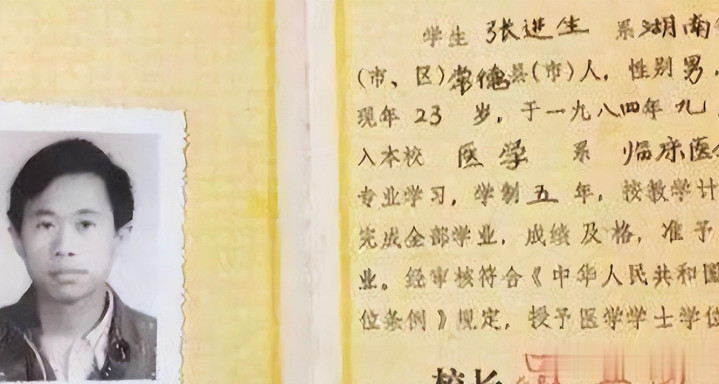 学生 张进生 系湖南
(市、区)常德县(市)人，性别男，
现年 23 岁，于一九八四年九
入本校 医学 系 临床医
专业学习，学制五年，按教学计
完成全部学业，成绩及格，准予
业。经审核符合《中华人民共和国
位条例》规定，授予医学学士学位
校长